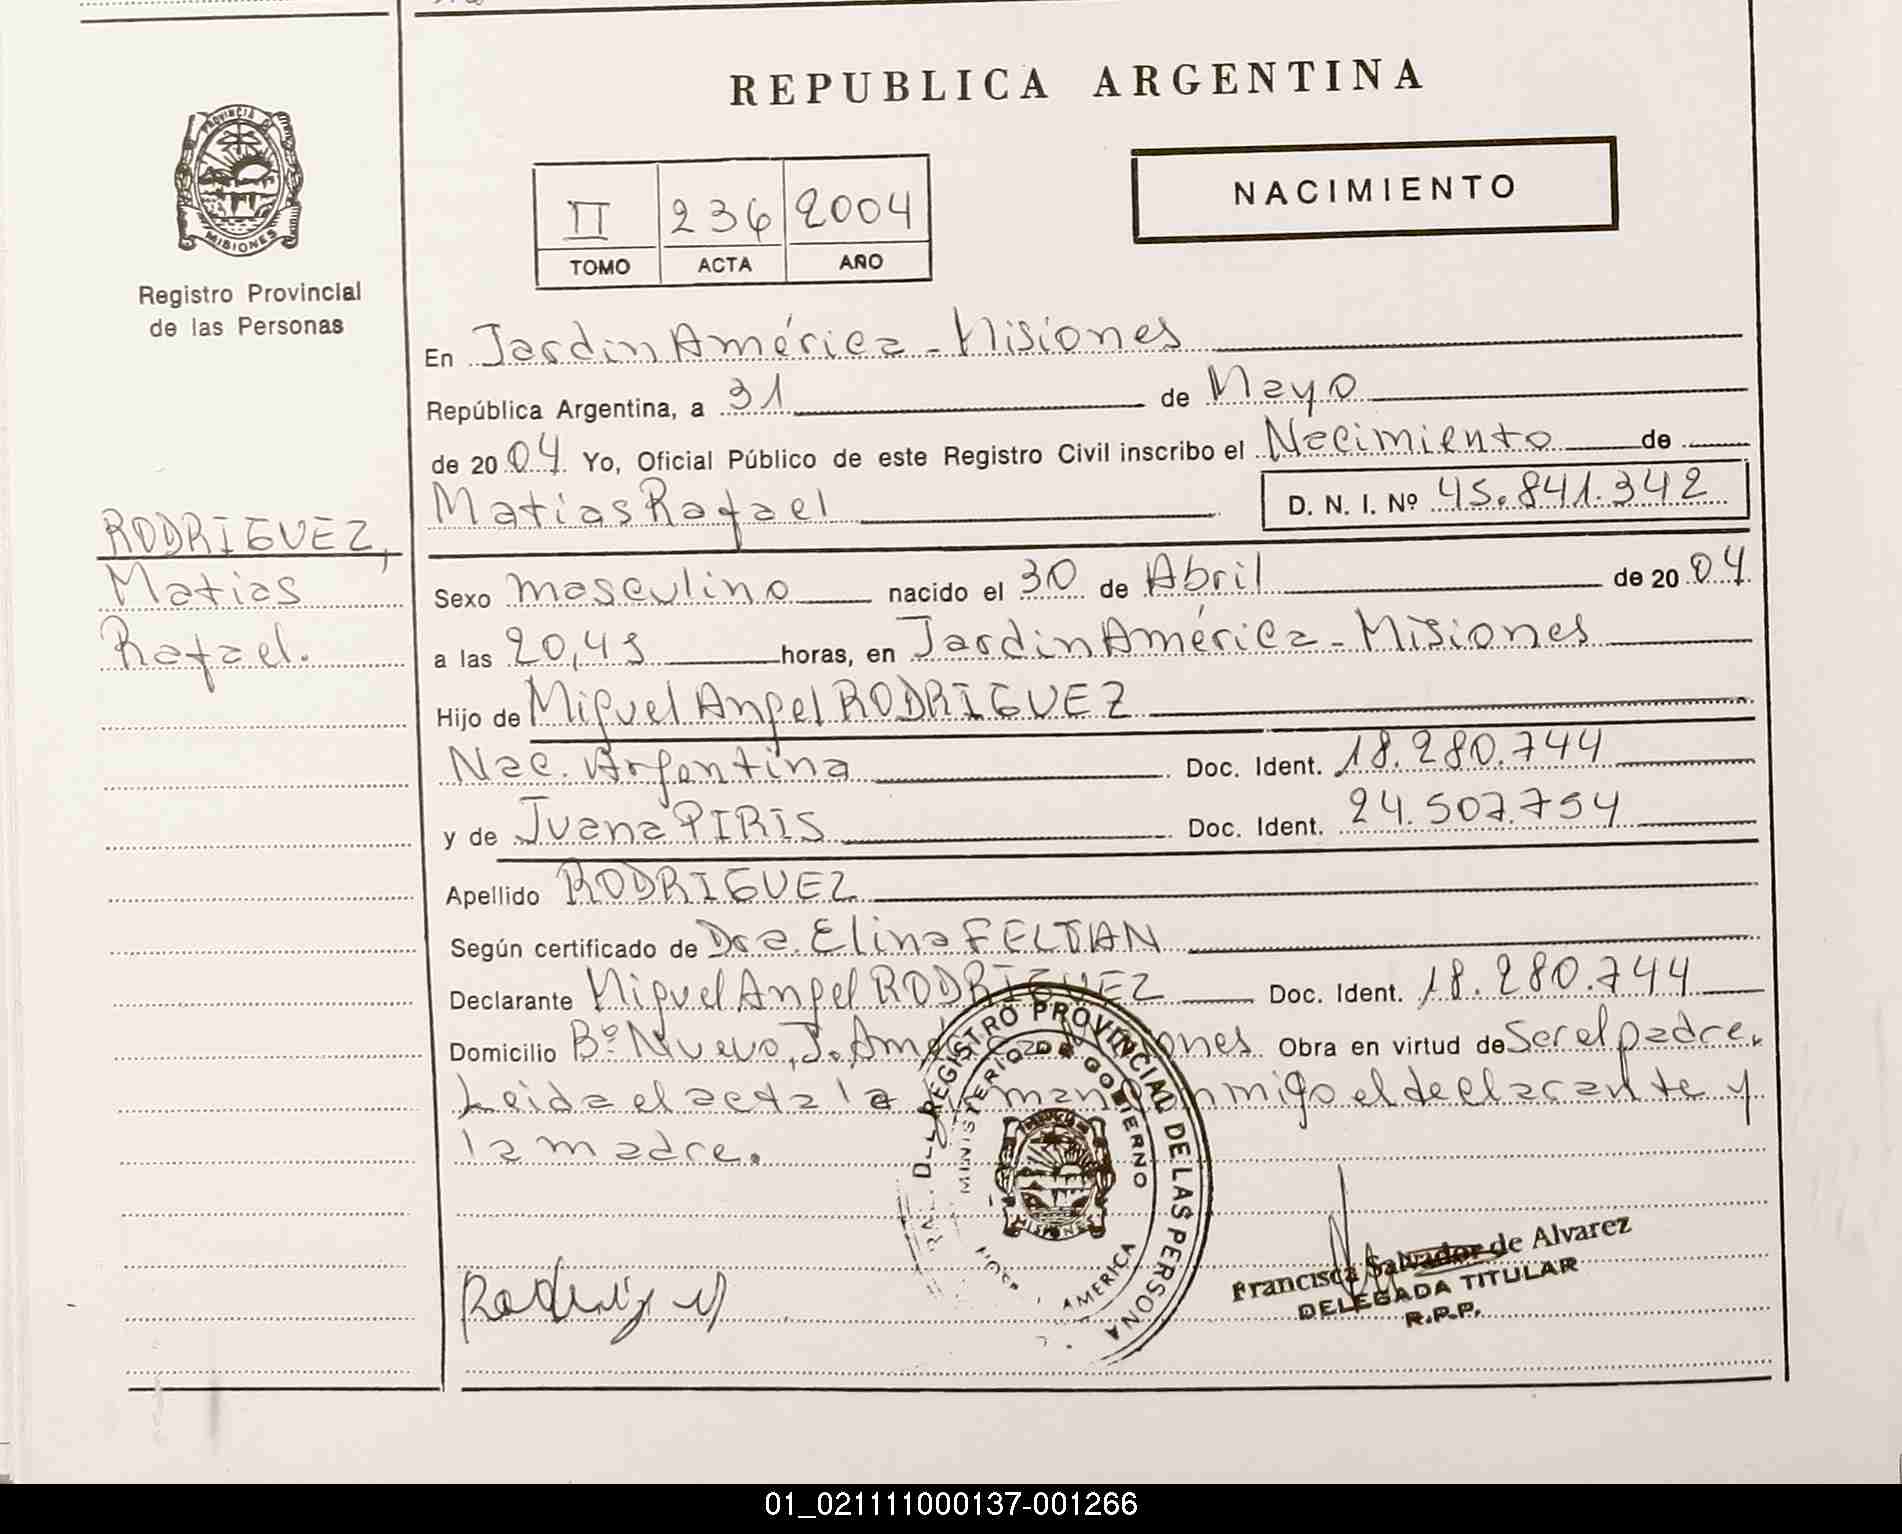 REPUBLICA ARGENTINA
PROVINCIA DE
MISIONES
Registro Provincial
de las Personas
II 236 2004
TOMO ACTA AÑO
NACIMIENTO
En Jardin América - Misiones
República Argentina, a 31 de Mayo
de 2004 Yo, Oficial Público de este Registro Civil inscribo el Nacimiento de
Matias Rafael D. N. I. Nº 45.841.342
RODRIGUEZ,
Matias
Rafael.
Sexo masculino nacido el 30 de Abril de 2004
a las 20,45 horas, en Jardin América - Misiones
Hijo de Miguel Angel RODRIGUEZ
Nac. Argentina Doc. Ident. 18.280.744
y de Juana PIRIS Doc. Ident. 24.507.754
Apellido RODRIGUEZ
Según certificado de Dra. Elina FELTAN
Declarante Miguel Angel RODRIGUEZ Doc. Ident. 18.280.744
Domicilio Bº Nuevo, J. América Misiones Obra en virtud de Ser el padre.
Leida el acta la firman conmigo el declarante y
la madre.
REGISTRO PROVINCIAL DE LAS PERSONA
MINISTERIO DE GOBIERNO
AMERICA
MISIONES
Rodriguez M
Francisca Salvador de Alvarez
DELEGADA TITULAR
R.P.P.
01_021111000137-001266